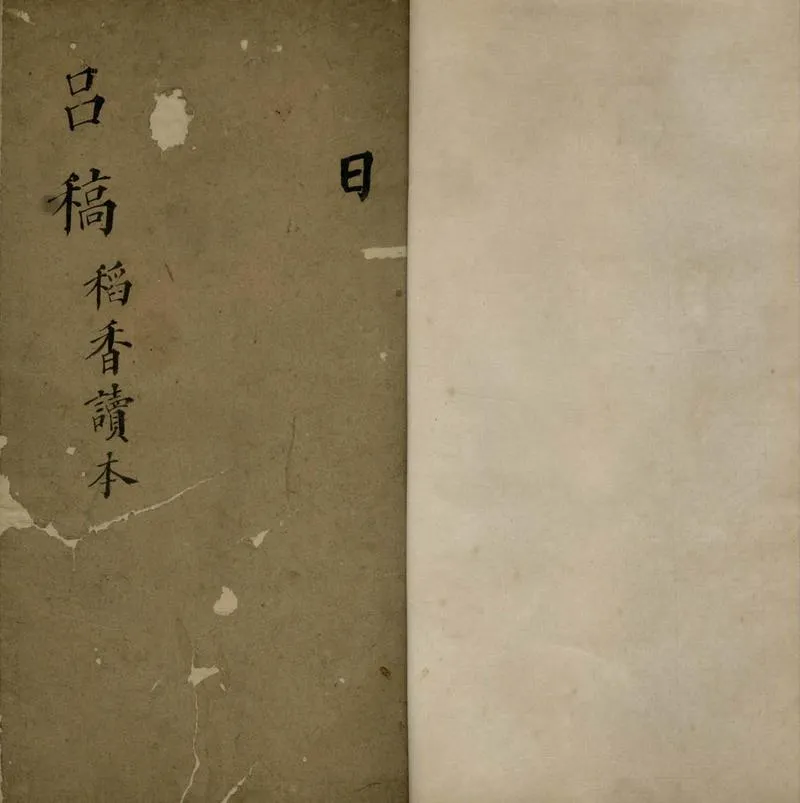 日
呂稿
稻香讀本